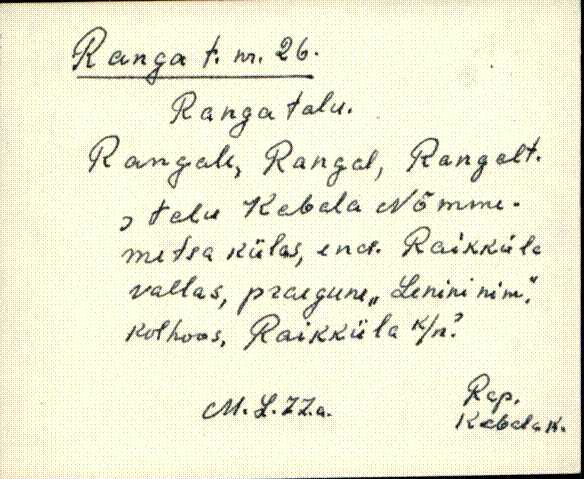 Ranga t. nr. 26.
Ranga talu.
Rangale, Rangal, Rangalt.
, talu Kabala Nõmme-
metsa külas, end. Raikküla
vallas, praegune „Lenini nim."
kolhoos, Raikküla k/n.
M. L. ZZ.a.
Rap.
Kabala k.